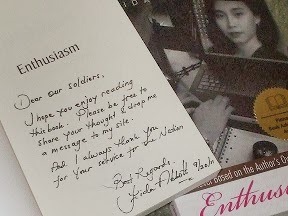 Enthusiasm
Dear our soldiers,
I hope you enjoy reading
this book. Please be free to
share your thought & drop me
a message to my site.
And I always thank you
for your service for our Nation
Best Regards.
Based on the Author's
Enthusi